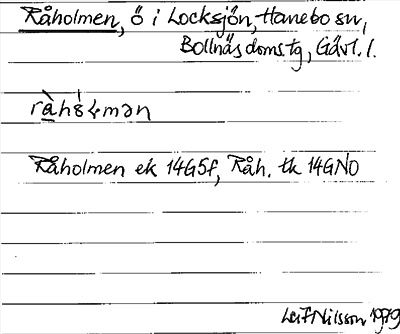 Råholmen, ö i Locksjön, Hanebo sn,
Bollnäs domstg, Gävl. l.
Råholmen ek 14G5f, Råh. tk 14GNO
Leif Nilsson 1979